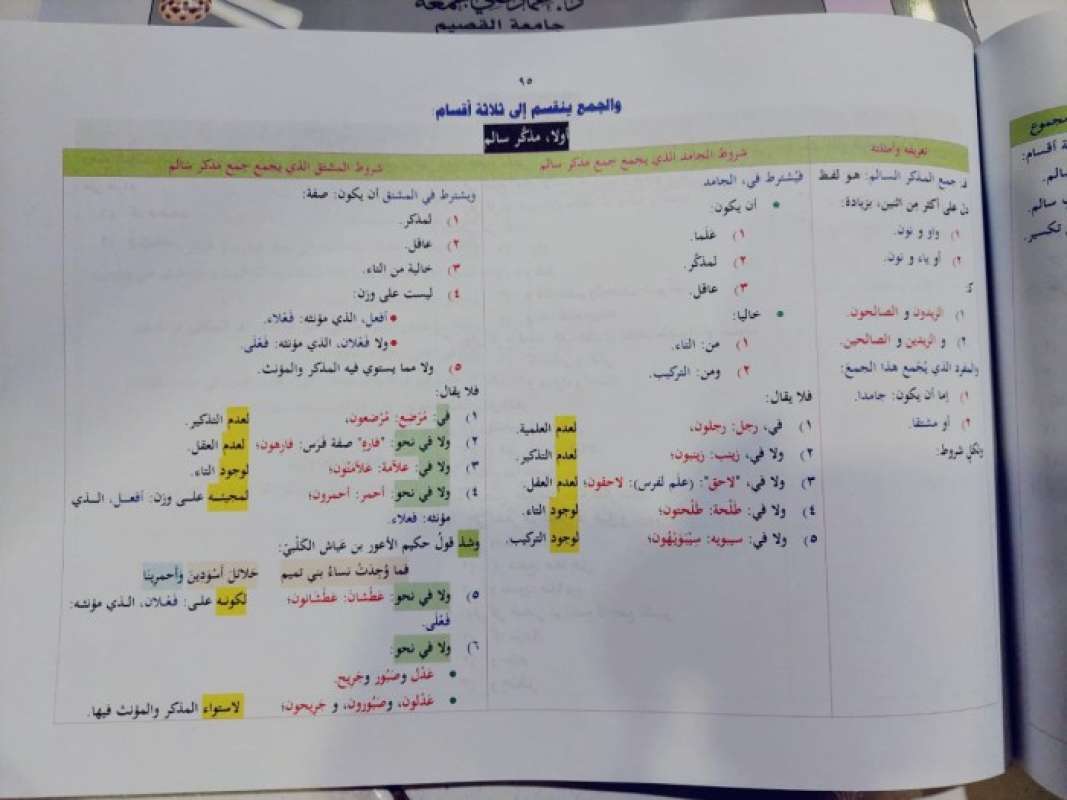 جامعة القصيم
٩٥
والجمع ينقسم إلى ثلاثة أقسام:
أولا، مذكّر سالم
تعريفه وأمثلته
فـ: جمع المذكر السالم: هو لفظ
دل على أكثر من اثنين، بزيادة:
١) واو و نون.
٢) أو ياء و نون.
كـ:
١) الزيدون و الصالحون.
٢) و الزيدين و الصالحين.
والمفرد الذي يُجْمع هذا الجمع:
١) إما أن يكون: جامدا.
٢) أو مشتقا.
ولكلٍ شروط:
شروط الجامد الذي يجمع جمع مذكر سالم
فيُشترط في، الجامد
• أن يكون:
١) عَلَما.
٢) لمذكّر.
٣) عاقل.
• خاليا:
١) من: التاء.
٢) ومن: التركيب.
فلا يقال:
١) في، رجل: رجلون، لعدم العلمية.
٢) ولا في، زينب: زينبون؛ لعدم التذكير.
٣) ولا في، "لاحق": (علَم لفرس): لاحقون؛ لعدم العقل.
٤) ولا في: طلْحة: طلْحتون؛ لوجود التاء.
٥) ولا في: سيبويه: سِيْبَوَيْهُون؛ لوجود التركيب.
شروط المشتق الذي يجمع جمع مذكر سالم
ويشترط في المشتق أن يكون: صفة:
١) لمذكر.
٢) عاقل.
٣) خالية من التاء.
٤) ليست على وزن:
• أفعل، الذي مؤنثه: فَعْلاء.
• ولا فَعْلان، الذي مؤنثه: فَعْلَى.
٥) ولا مما يستوي فيه المذكر والمؤنث.
فلا يقال:
١) في: مُرْضِع: مُرْضعون، لعدم التذكير.
٢) ولا في نحو: "فاره" صفة فَرَس: فارهون؛ لعدم العقل.
٣) ولا في: علاّمة: عَلاّمتُون؛ لوجود التاء.
٤) ولا في نحو: أحمر: أحمرون؛ لمجيئه على وزن: أفعل، الذي
مؤنثه: فعلاء.
وشذ قولُ حكيم الأعور بن عَياش الكَلْبيّ:
فما وُجِدَتْ نساءُ بني تميم حَلائلَ أسْوَدِينَ وأحمرِينَا
٥) ولا في نحو: عَطْشانَ: عَطْشانون؛ لكونه على: فَعْلان، الذي مؤنثه:
فَعْلَى.
٦) ولا في نحو:
• عَدْل وصَبُور وجَرِيح.
• عَدْلون، وصَبُورون، و جَرِيحون؛ لاستواء المذكر والمؤنث فيها.